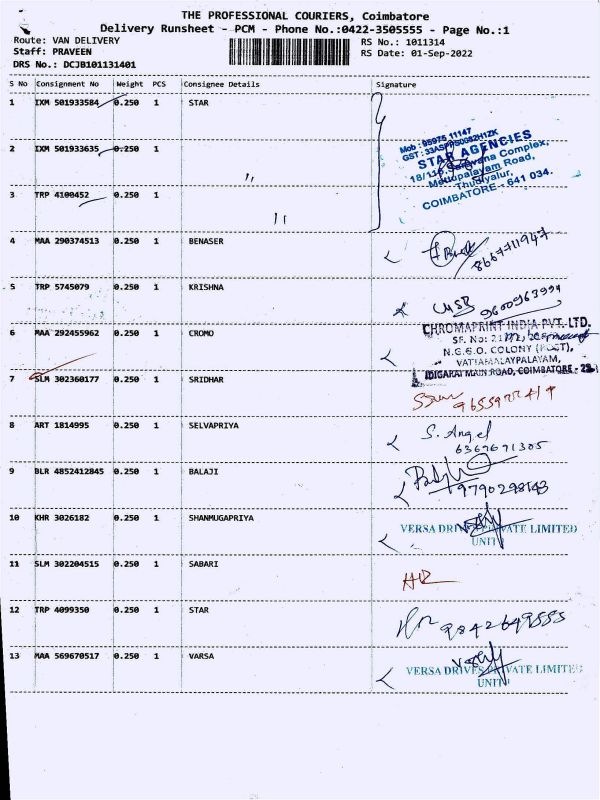 THE PROFESSIONAL COURIERS, Coimbatore
Delivery Runsheet - PCM - Phone No.:0422-3505555 - Page No.:1
Route: VAN DELIVERY RS No.: 1011314
Staff: PRAVEEN RS Date: 01-Sep-2022
DRS No.: DCJB101131401
S No Consignment No Weight PCS Consignee Details Signature
1 IXM 501933584 0.250 1 STAR
Mob: 95975 11147
STAR AGENCIES
Mettupalayam Road,
Thudiyalur,
COIMBATORE - 641 034.
2 IXM 501933635 0.250 1
"
3 TRP 4100452 0.250 1
"
4 MAA 290374513 0.250 1 BENASER
8667711947
5 TRP 5745079 0.250 1 KRISHNA
9600963994
6 MAA 292455962 0.250 1 CROMO
CHROMAPRINT INDIA PVT. LTD.
SF. No:
N.G.G.O. COLONY (POST),
VATTAMALAYPALAYAM,
IDIGARAI MAIN ROAD, COIMBATORE - 22
7 SLM 302360177 0.250 1 SRIDHAR
8 ART 1814995 0.250 1 SELVAPRIYA
S. Angel
6369691305
9 BLR 4852412845 0.250 1 BALAJI
9790298143
10 KHR 3026182 0.250 1 SHANMUGAPRIYA
VERSA DRIVES PRIVATE LIMITED
UNIT
11 SLM 302204515 0.250 1 SABARI
12 TRP 4099350 0.250 1 STAR
9842649555
13 MAA 569670517 0.250 1 VARSA
VERSA DRIVES PRIVATE LIMITED
UNIT